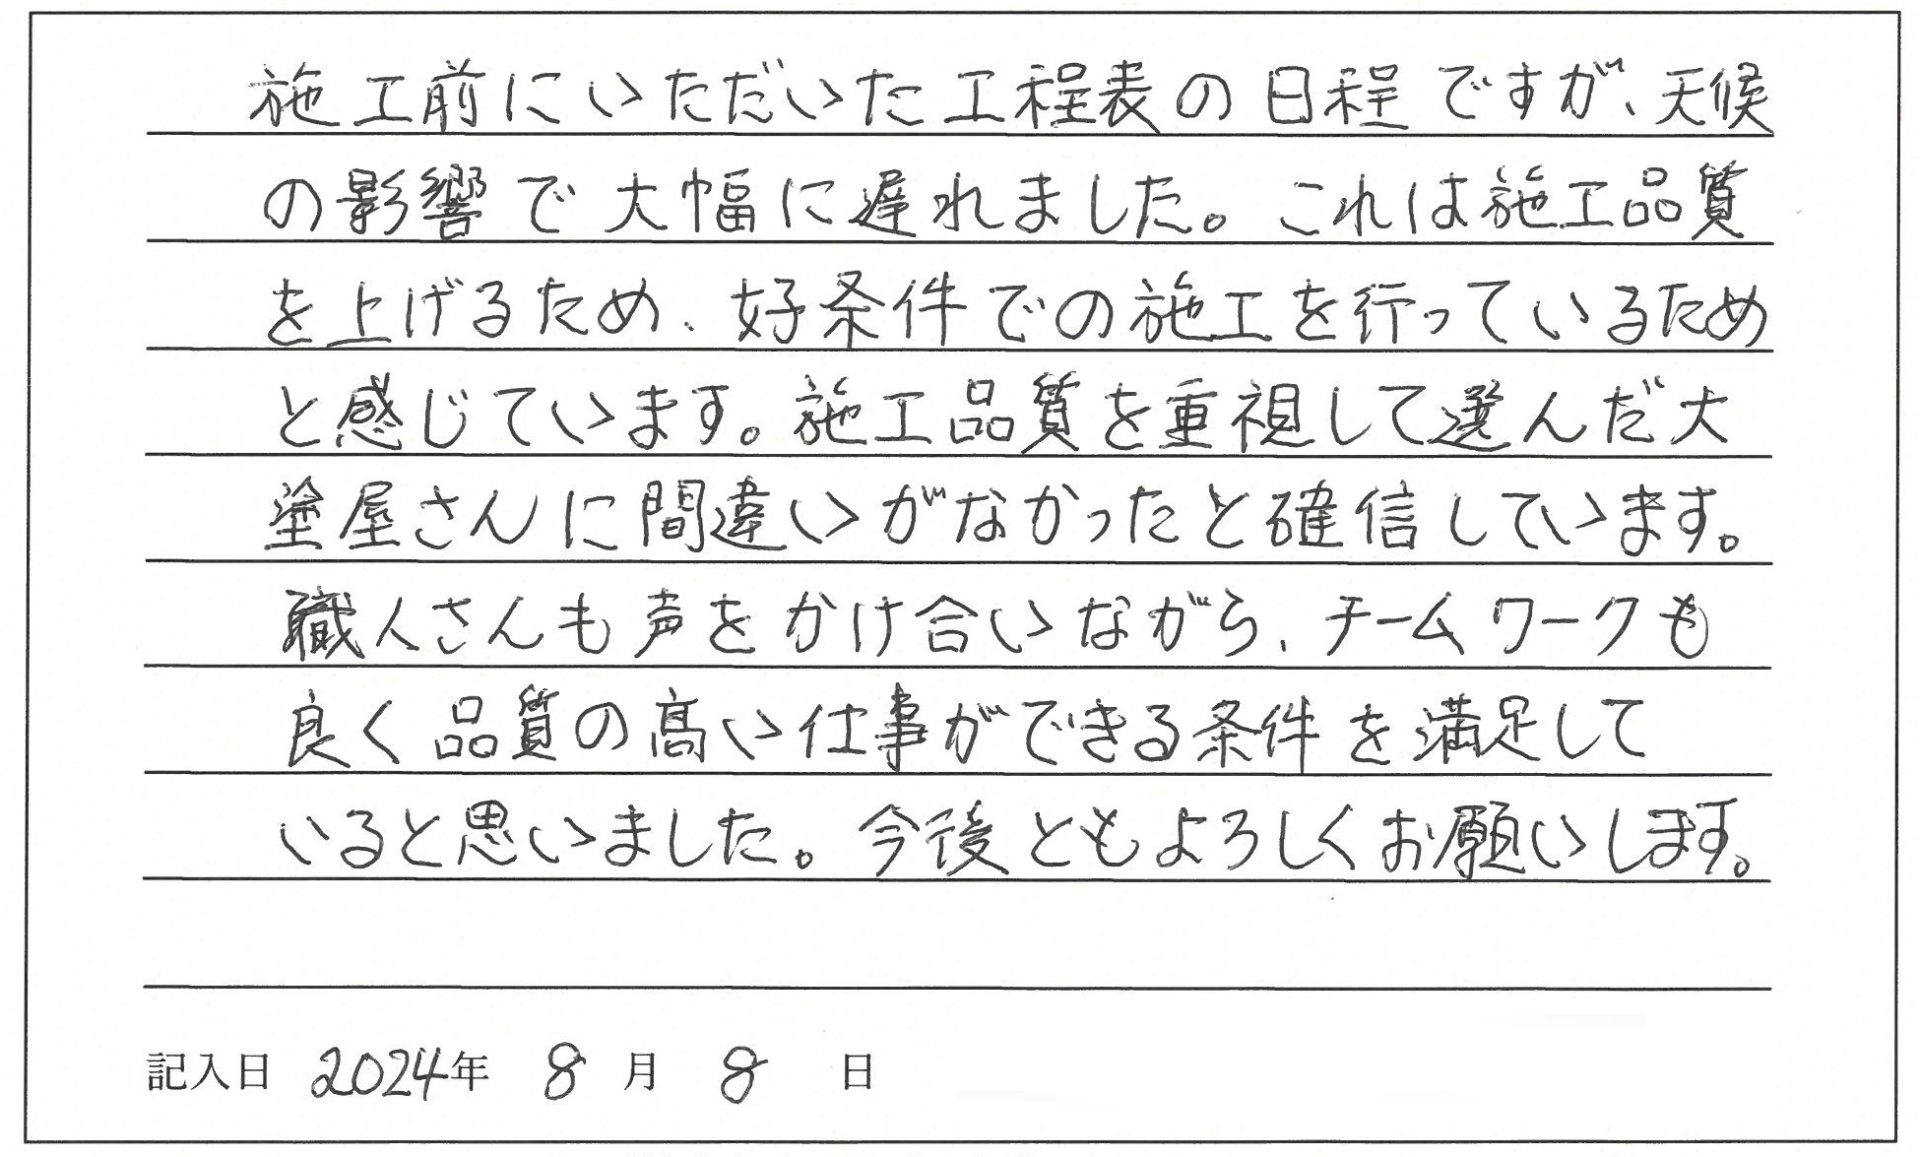 施工前にいただいた工程表の日程ですが、天候
の影響で大幅に遅れました。これは施工品質
を上げるため、好条件での施工を行っているため
と感じています。施工品質を重視して選んだ大
塗屋さんに間違いがなかったと確信しています。
職人さんも声をかけ合いながら、チームワークも
良く品質の高い仕事ができる条件を満足して
いると思いました。今後ともよろしくお願いします。
記入日 2024年 8月 8日